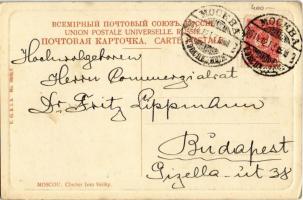 400.-
ВСЕМІРНЫЙ ПОЧТОВЫЙ СОЮЗЪ. РОССІЯ
UNION POSTALE UNIVERSELLE. RUSSIE
ПОЧТОВАЯ КАРТОЧКА. CARTE POSTALE
МОСКВА
МОСКВА
Hochwolgeboren
Herrn Commerzialrat
Dr. Fritz Lippmann
Budapest
Gizella-út 38
MOSCOU. Clocher Iwan Weliky.